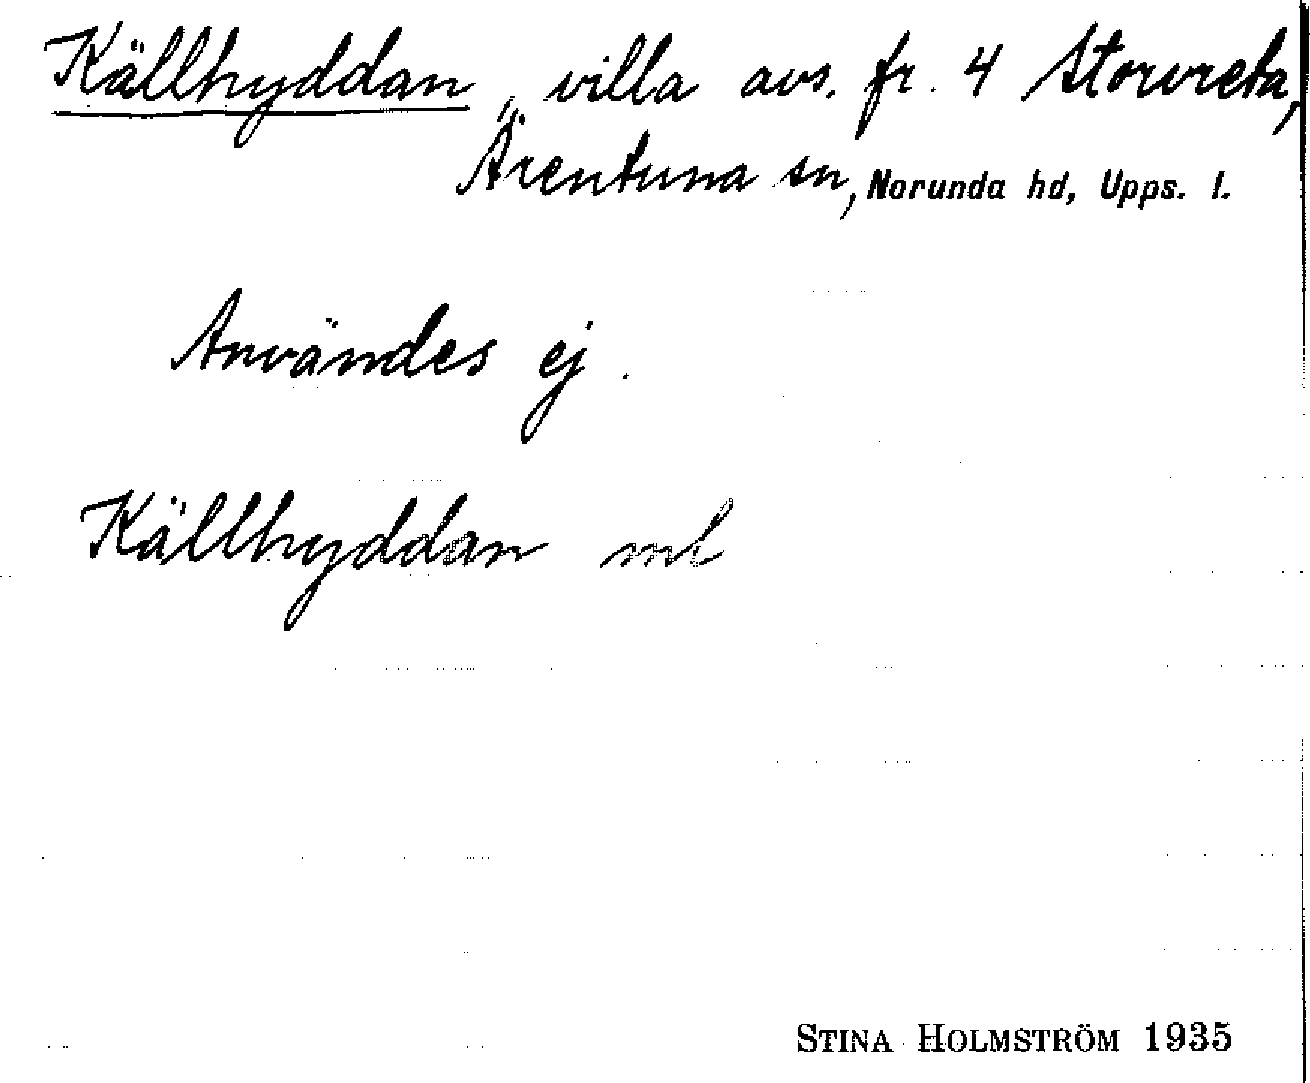 Källhyddan, villa avs. fr. 4 Storvreta,
Ärentuna sn, Norunda hd, Upps. l.
Användes ej.
Källhyddan
STINA HOLMSTRÖM 1935